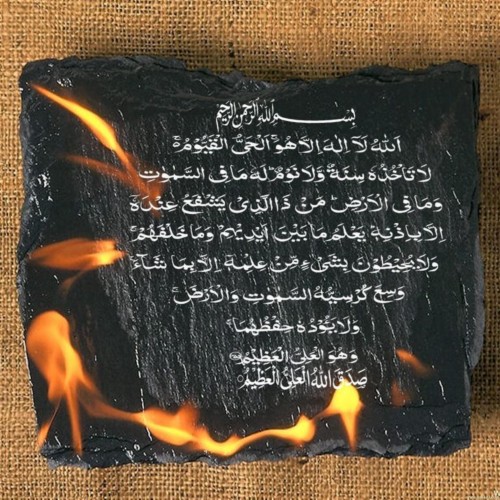 بِسْمِ اللهِ الرَّحْمٰنِ الرَّحِيْمِ
اَللهُ لَآ اِلٰهَ اِلَّا هُوَۚ اَلْحَيُّ الْقَيُّوْمُ ۚ
لَا تَأْخُذُهٗ سِنَةٌ وَّلَا نَوْمٌ ؕ لَهٗ مَا فِى السَّمٰوٰتِ
وَمَا فِى الْاَرْضِ ؕ مَنْ ذَا الَّذِىْ يَشْفَعُ عِنْدَهٗٓ
اِلَّا بِاِذْنِهٖ ؕ يَعْلَمُ مَا بَيْنَ اَيْدِيْهِمْ وَمَا خَلْفَهُمْ ۚ
وَلَا يُحِيْطُوْنَ بِشَىْءٍ مِّنْ عِلْمِهٖٓ اِلَّا بِمَا شَآءَ ۚ
وَسِعَ كُرْسِيُّهُ السَّمٰوٰتِ وَالْاَرْضَ ۚ
وَلَا يَئُوْدُهٗ حِفْظُهُمَا ۚ
وَهُوَ الْعَلِىُّ الْعَظِيْمُ
صَدَقَ اللهُ الْعَلِىُّ الْعَظِيْمُ